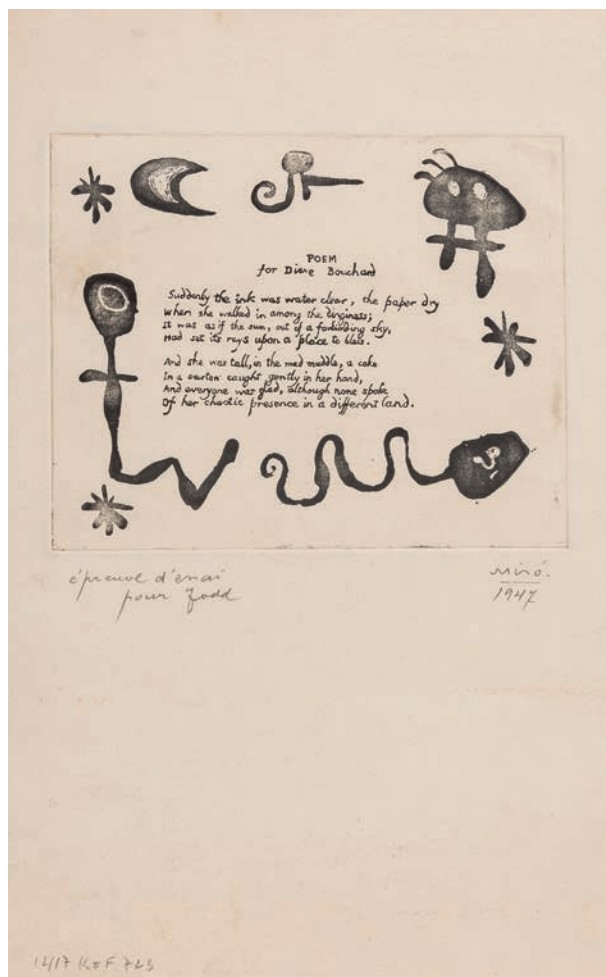 POEM
for Diane Bouchard
Suddenly the ink was water clear, the paper dry
When she walked in among the dinginess;
It was as if the sun, out of a forbidding sky,
Had set its rays upon a place to bless.
And she was tall, in the mad muddle, a cake
In a carton caught gently in her hand,
And everyone was glad, although none spoke
Of her chaotic presence in a different land.
épreuve d'essai
pour Todd
Miró.
1947